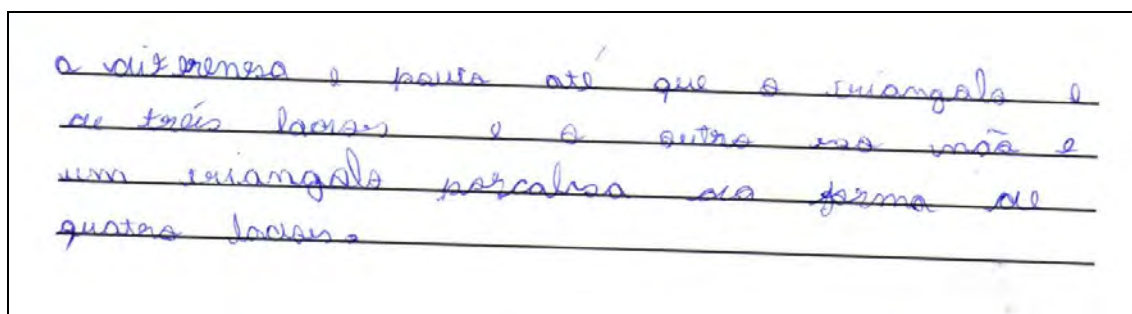 a diferensa e pouca até que o triangalo e
de treis lados e o outro não e
um triangalo porcalsa da forma de
quatro lados.